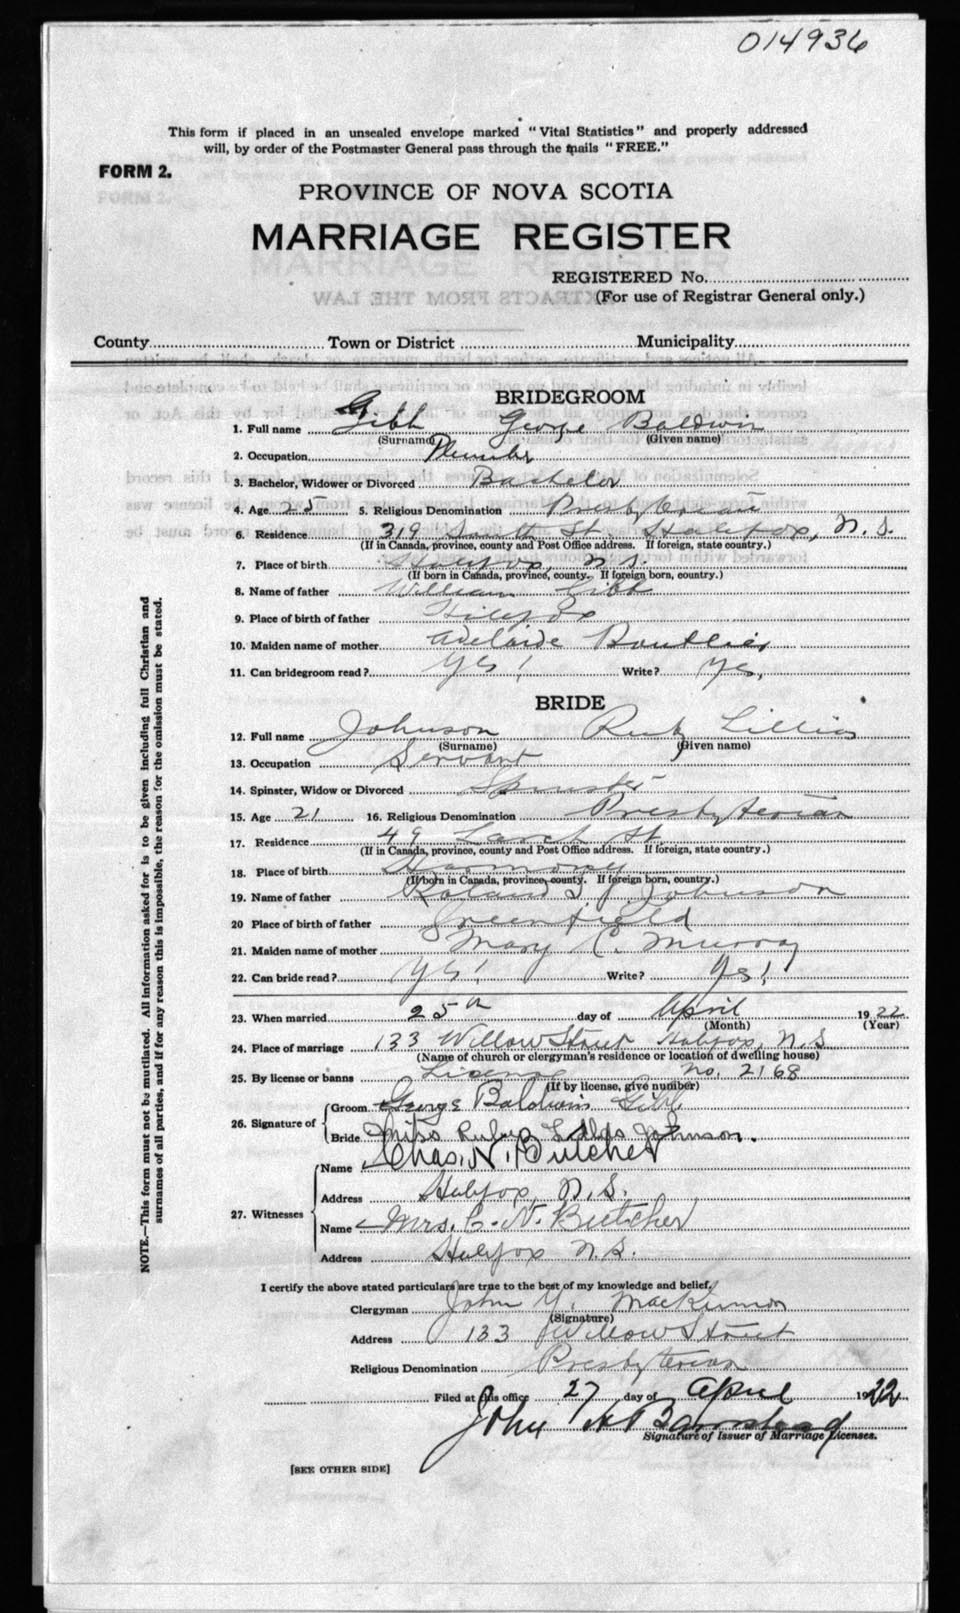 014936
This form if placed in an unsealed envelope marked "Vital Statistics" and properly addressed
will, by order of the Postmaster General pass through the mails "FREE."
FORM 2.
PROVINCE OF NOVA SCOTIA
MARRIAGE REGISTER
REGISTERED No.
(For use of Registrar General only.)
County Town or District Municipality
BRIDEGROOM
1. Full name Gibb George Baldwin
(Surname) (Given name)
2. Occupation Plumber
3. Bachelor, Widower or Divorced Bachelor
4. Age 25 5. Religious Denomination Presbyterian
6. Residence 319 South St. Halifax, N.S.
(If in Canada, province, county and Post Office address. If foreign, state country.)
7. Place of birth Halifax, N.S.
(If born in Canada, province, county. If foreign born, country.)
8. Name of father William Gibb
9. Place of birth of father Halifax
10. Maiden name of mother Adelaide Boutlier
11. Can bridegroom read? Yes! Write? Yes,
BRIDE
12. Full name Johnson Ruby Lillias
(Surname) (Given name)
13. Occupation Servant
14. Spinster, Widow or Divorced Spinster
15. Age 21 16. Religious Denomination Presbyterian
17. Residence 49 Larch St
(If in Canada, province, county and Post Office address. If foreign, state country.)
18. Place of birth Harmony
(If born in Canada, province, county. If foreign born, country.)
19. Name of father Roland J. Johnson
20 Place of birth of father Greenfield
21. Maiden name of mother Mary C. Murray
22. Can bride read? Yes! Write? Yes!
23. When married 25th day of April 1922
(Month) (Year)
24. Place of marriage 133 Willow Street Halifax, N.S
(Name of church or clergyman's residence or location of dwelling house)
25. By license or banns License No. 2168
(If by license, give number)
26. Signature of Groom George Baldwin Gibb
Bride Miss Ruby Johnson.
27. Witnesses Name Chas. N. Butcher
Address Halifax, N.S.
Name Mrs. C. N. Butcher
Address Halifax N.S.
I certify the above stated particulars are true to the best of my knowledge and belief.
Clergyman John Y. MacKinnon
(Signature)
Address 133 Willow Street
Religious Denomination Presbyterian
Filed at this office 27 day of April 1922
John H Barnstead
Signature of Issuer of Marriage Licenses.
[SEE OTHER SIDE]
NOTE.—This form must not be mutilated. All information asked for is to be given including full Christian and
surnames of all parties, and if for any reason this is impossible, the reason for the omission must be stated.